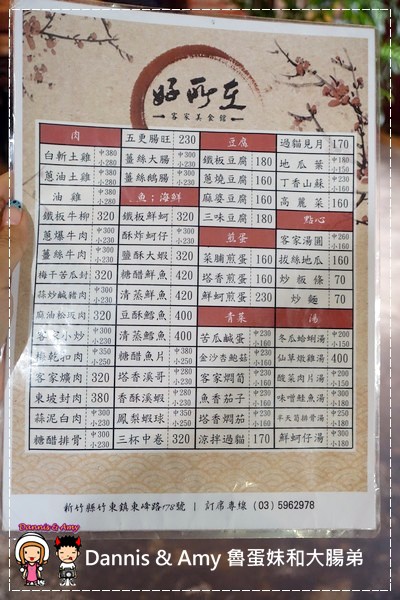 好所在
客家美食館
肉
白斬土雞 中380 小280
蔥油土雞 中380 小280
油雞 中380 小280
鐵板牛柳 320
蔥爆牛肉 中300 小230
薑絲牛肉 中300 小230
梅干苦瓜封 320
蒜炒鹹豬肉
麻油松阪肉
客家小炒
梅乾扣肉
客家爌肉 320
東坡封肉 380
蒜泥白肉 中300 小230
糖醋排骨 中300 小230
五更腸旺 230
薑絲大腸 中300 小230
薑絲鵝腸 中300 小230
魚；海鮮
鐵板鮮蚵
酥炸蚵仔 中300 小230
鹽酥大蝦 320
糖醋鮮魚 420
清蒸鮮魚 420
豆酥鱈魚 400
清蒸鱈魚 400
糖醋魚片 中380 小250
塔香溪哥 中380 小280
香酥溪蝦 中380 小280
鳳梨蝦球 中350 小250
三杯中卷 320
豆腐
鐵板豆腐 180
蔥燒豆腐 160
麻婆豆腐 180
三味豆腐 180
煎蛋
菜脯煎蛋 160
塔香煎蛋 160
鮮蚵煎蛋 230
青菜
苦瓜鹹蛋 中230 小160
金沙杏鮑菇 中230 小160
客家燜筍
魚香茄子
塔香燜茄
涼拌過貓 170
過貓見月 170
地瓜葉 中180 小150
丁香山蘇
高麗菜
點心
客家湯圓 中260 小160
拔絲地瓜
炒粄條 70
炒麵 70
湯
冬瓜蛤蜊湯 中200 小150
仙草燉雞湯 400
酸菜肉片湯
味噌鮭魚湯
半天筍排骨湯
鮮蚵仔湯
新竹縣竹東鎮東峰路178號 | 訂席專線 (03) 5962978
Dannis & Amy
Dannis & Amy 魯蛋妹和大腸弟